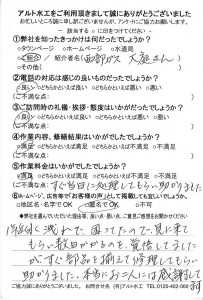 アルト水工をご利用頂きまして誠にありがとうございました
お忙しいところ誠に申し訳ございませんが、アンケートにご協力お願いします。
― 該当する○に印をつけてください ―
①弊社を知ったきっかけは何だったでしょうか?
○タウンページ ○ホームページ ○水道局
ご紹介 紹介者名(西部ガス 大庭さん)
○その他(
②電話の対応は感じの良いものだったでしょうか?
○良い ○どちらかといえば良い ○どちらかといえば悪い ○悪い
(ご不満な点:
③ご訪問時の礼儀・挨拶・態度はいかがだったでしょうか?
○良い ○どちらかといえば良い ○どちらかといえば悪い ○悪い
(ご不満な点:
④作業内容、修繕結果はいかがでしたでしょうか?
○満足 ○どちらかといえば満足 ○どちらかといえば不満 ○不満
(ご不満な点:
⑤作業料金はいかがでしたでしょうか?
○満足 ○どちらかといえば満足 ○どちらかといえば不満 ○不満
(ご不満な点: すぐ当日に処理してもらい助かりました
⑥ホームページ、広告等で「お客様の声」として掲載しても宜しいでしょうか?
○地区名・名字でOK ○匿名でOK ○不可
◆弊社を選んでいただいた理由等、良い点・悪い点、ご意見ご感想をお聞かせください
水漏れで困ってたので、見に来て
もらい数日かかるのを、覚悟してました
がすぐ部品を揃えて修理してもらい
助かりました。本当にお二人には感謝して
ご協力ありがとうございました。 お問合せ先 (有)アルト水工 TEL 0120-462-066